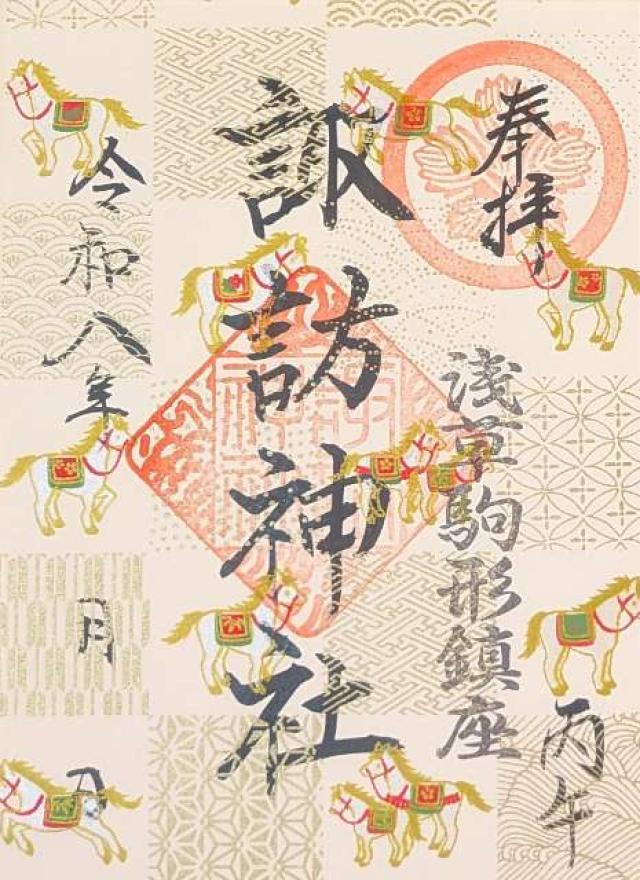 奉拝
浅草駒形鎮座
丙午
諏訪神社
令和八年
月
日